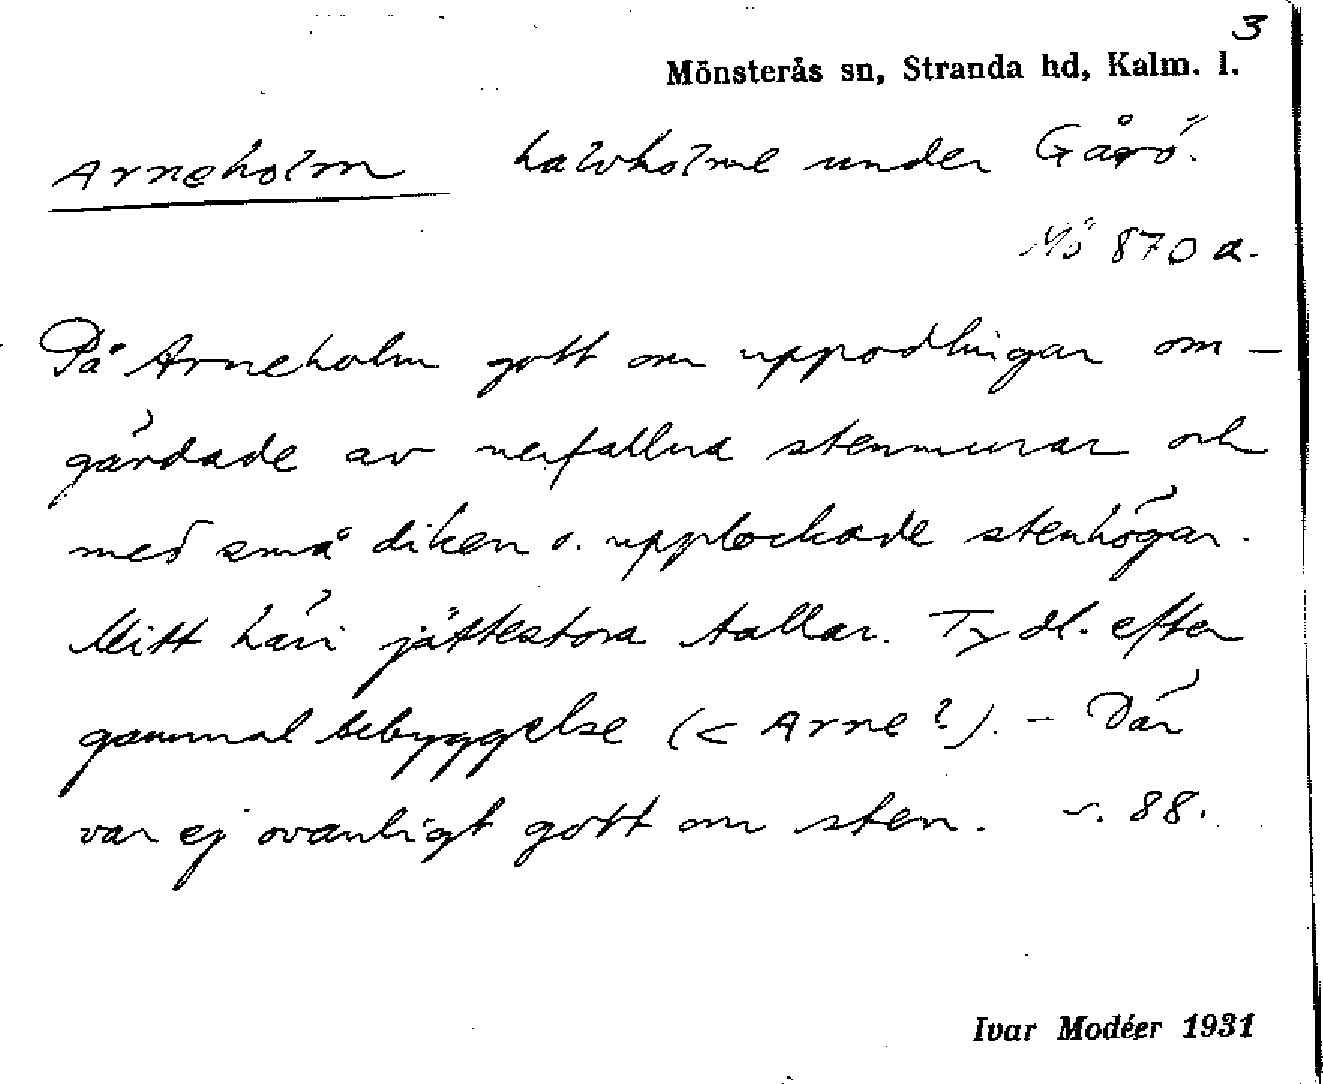 3
Mönsterås sn, Stranda hd, Kalm. l.
Arneholm halvholme under Gårö.
Mö 870 a.
På Arneholm gott om uppodlingar om-
gärdade av nerfallna stenmurar och
med små diken o. upplockade stenhögar.
Mitt häri jättestora tallar. Tydl. efter
gammal bebyggelse (< Arne?). – Där
var ej ovanligt gott om sten. s. 88.
Ivar Modéer 1931